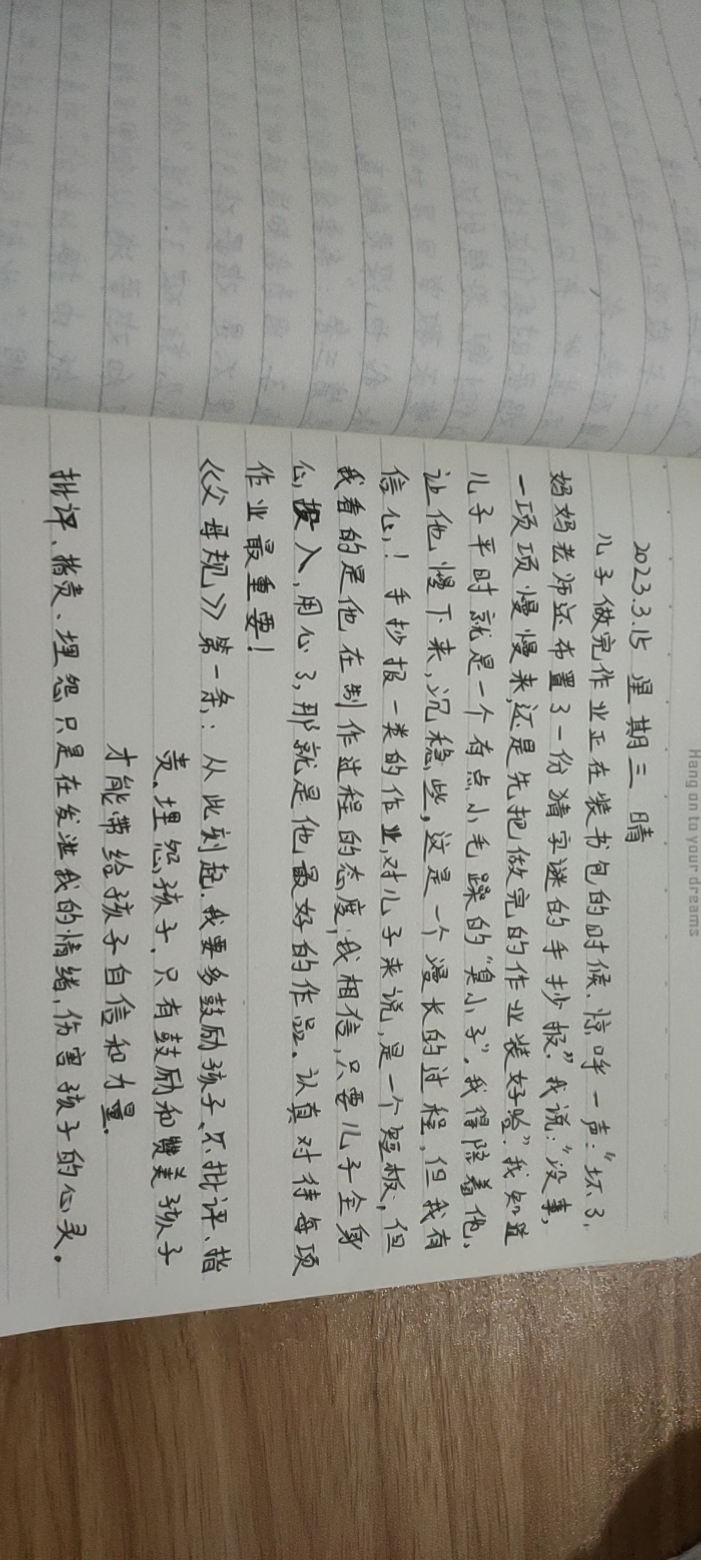 Hang on to your dreams
2023.3.15 星期三 晴
儿子做完作业正在装书包的时候,惊呼一声:“坏了,
妈妈老师还布置了一份猜字谜的手抄报。”我说:“没事,
一项项慢慢来,还是先把做完的作业装好哈。”我知道
儿子平时就是一个有点小毛躁的“臭小子”。我得陪着他,
让他慢下来,沉稳些,这是一个漫长的过程,但我有
信心!手抄报一类的作业,对儿子来说,是一个短板,但
我看的是他在制作过程的态度,我相信,只要儿子全身
心投入,用心了,那就是他最好的作品。认真对待每项
作业最重要!
《父母规》第一条:从此刻起,我要多鼓励孩子、不批评、指
责、埋怨孩子,只有鼓励和赞美孩子
才能带给孩子自信和力量。
批评、指责、埋怨只是在发泄我的情绪,伤害孩子的心灵。